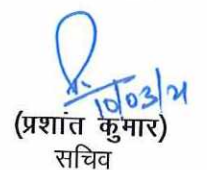 10/03/21
(प्रशांत कुमार)
सचिव